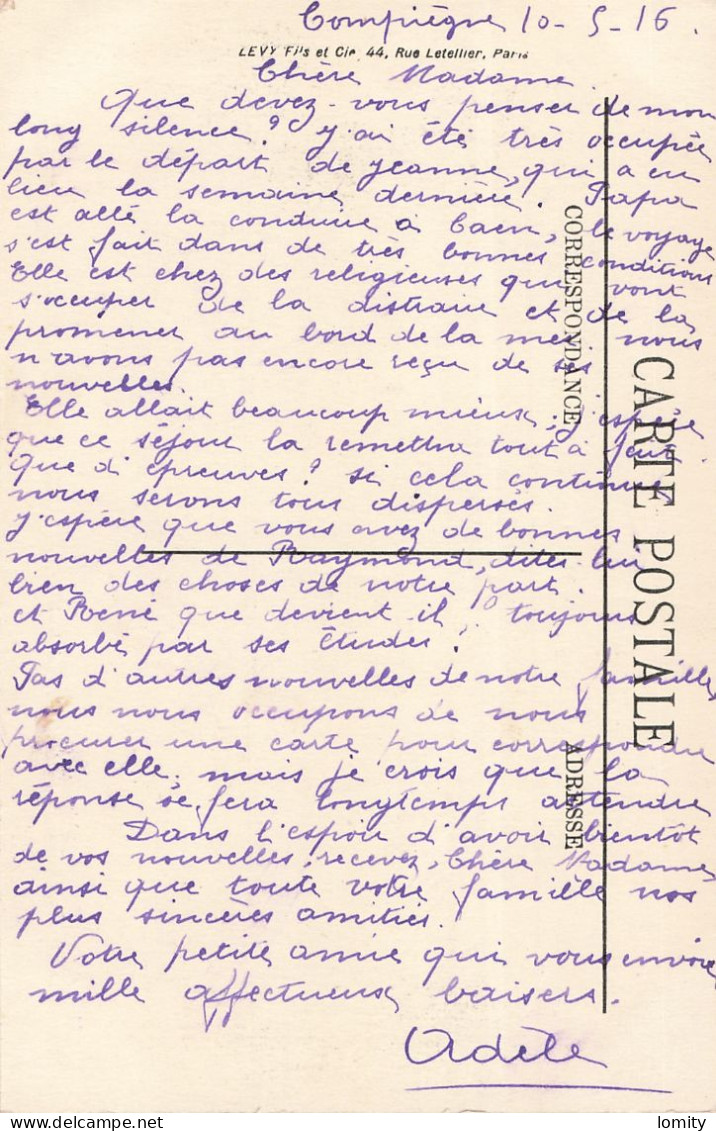 Compiègne 10-5-16.
LEVY Fils et Cie 44, Rue Letellier, Paris
Chère Madame
Que devez-vous penser de mon
long silence ? j'ai été très occupée
par le départ de Jeanne, qui a eu
lieu la semaine dernière. Papa
est allé la conduire à Caen, le voyage
s'est fait dans de très bonnes conditions
Elle est chez des religieuses qui vont
s'occuper de la distraire et de la
promener au bord de la mer, nous
n'avons pas encore reçu de ses
nouvelles.
Elle allait beaucoup mieux, j'espère
que ce séjour la remettra tout à fait
Que d'épreuves ? si cela continue
nous serons tous dispersés.
J'espère que vous avez de bonnes
nouvelles de Raymond, dites-lui
bien des choses de notre part.
et René que devient il ? toujours
absorbé par ses études ?
Pas d'autres nouvelles de notre famille,
nous nous occupons de nous
procurer une carte pour correspondre
avec elle, mais je crois que la
réponse se fera longtemps attendre
Dans l'espoir d'avoir bientôt
de vos nouvelles, recevez, Chère Madame,
ainsi que toute votre famille nos
plus sincères amitiés.
Votre petite amie qui vous envoie
mille affectueux baisers.
Adèle
CARTE POSTALE
CORRESPONDANCE
ADRESSE
lomity